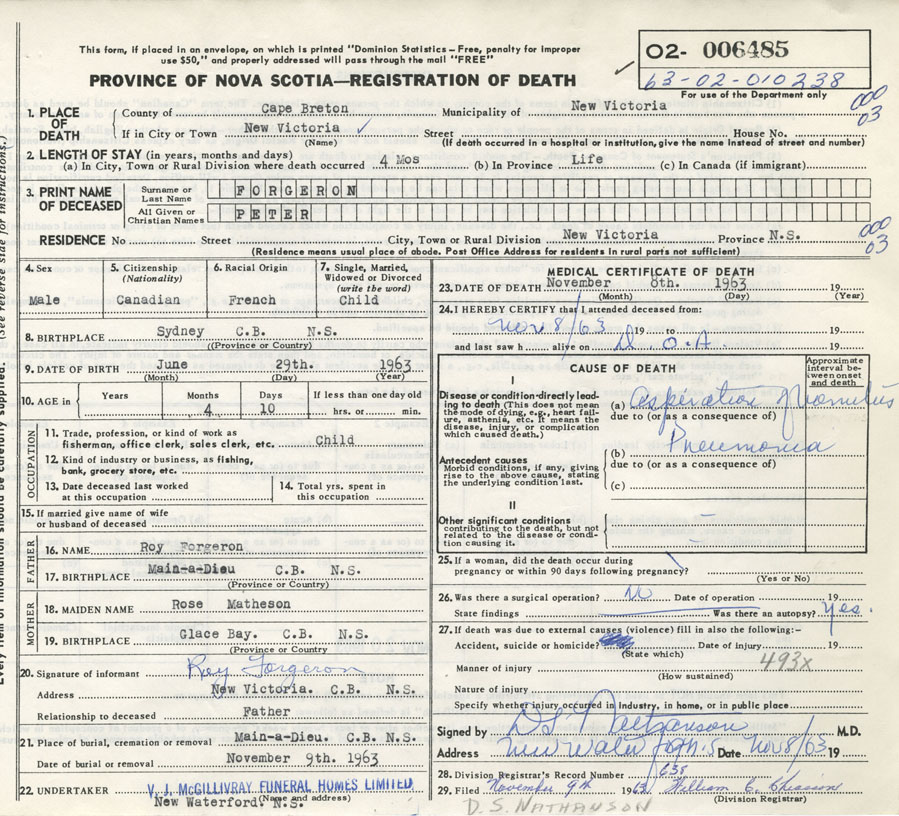 This form, if placed in an envelope, on which is printed "Dominion Statistics – Free, penalty for improper
use $50," and properly addressed will pass through the mail "FREE"
✓ O2- 006485
63-02-010238
PROVINCE OF NOVA SCOTIA—REGISTRATION OF DEATH
For use of the Department only
1. PLACE OF DEATH
County of Cape Breton Municipality of New Victoria 000 03
If in City or Town New Victoria ✓ Street House No.
(Name) (If death occurred in a hospital or institution, give the name instead of street and number)
2. LENGTH OF STAY (in years, months and days)
(a) In City, Town or Rural Division where death occurred 4 Mos (b) In Province Life (c) In Canada (if immigrant)
3. PRINT NAME OF DECEASED
Surname or Last Name FORGERON
All Given or Christian Names PETER
RESIDENCE No Street City, Town or Rural Division New Victoria Province N.S. 000 03
(Residence means usual place of abode. Post Office Address for residents in rural parts not sufficient)
4. Sex 5. Citizenship (Nationality) 6. Racial Origin 7. Single, Married, Widowed or Divorced (write the word)
Male Canadian French Child
8. BIRTHPLACE Sydney C.B. N.S.
((Province or Country)
9. DATE OF BIRTH June 29th. 1963
(Month) (Day) (Year)
10. AGE in Years Months Days If less than one day old
4 10 hrs. or min.
OCCUPATION
11. Trade, profession, or kind of work as
fisherman, office clerk, sales clerk, etc. Child
12. Kind of industry or business, as fishing,
bank, grocery store, etc.
13. Date deceased last worked
at this occupation
14. Total yrs. spent in
this occupation
15. If married give name of wife
or husband of deceased
FATHER
16. NAME Roy Forgeron
17. BIRTHPLACE Main-a-Dieu C.B. N.S.
(Province or Country)
MOTHER
18. MAIDEN NAME Rose Matheson
19. BIRTHPLACE Glace Bay. C.B. N.S.
(Province or Country)
20. Signature of informant Roy Forgeron
Address New Victoria. C.B. N.S.
Relationship to deceased Father
21. Place of burial, cremation or removal Main-a-Dieu. C.B. N.S.
Date of burial or removal November 9th. 1963
22. UNDERTAKER V. J. McGILLIVRAY FUNERAL HOMES LIMITED
New Waterford. N.S.
(Name and address)
MEDICAL CERTIFICATE OF DEATH
23. DATE OF DEATH November 8th. 1963 19
(Month) (Day) (Year)
24. I HEREBY CERTIFY that I attended deceased from:
Nov 8/63 19 to 19
and last saw h alive on D.O.A 19
CAUSE OF DEATH
Approximate interval between onset and death
I
Disease or condition directly leading to death (This does not mean
the mode of dying, e.g., heart failure, asthenia, etc. It means the
disease, injury, or complication
which caused death.)
(a) Aspiration of vomitus
due to (or as a consequence of)
Antecedent causes
Morbid conditions, if any, giving
rise to the above cause, stating
the underlying condition last.
(b) Pneumonia
due to (or as a consequence of)
(c)
II
Other significant conditions
contributing to the death, but not
related to the disease or condition causing it.
25. If a woman, did the death occur during
pregnancy or within 90 days following pregnancy?
(Yes or No)
26. Was there a surgical operation? No Date of operation 19
State findings Was there an autopsy? Yes.
27. If death was due to external causes (violence) fill in also the following:–
Accident, suicide or homicide? Date of injury 19
(State which)
Manner of injury 493x
(How sustained)
Nature of injury
Specify whether injury occurred in Industry, in home, or in public place
Signed by D S Nathanson M.D.
Address New Waterford N.S Date Nov 8/63 19
28. Division Registrar's Record Number 635
29. Filed November 9th 1963 William C. Chiasson
(Division Registrar)
D.S. NATHANSON
(See reverse side for instructions.)
Every item of information should be carefully supplied.